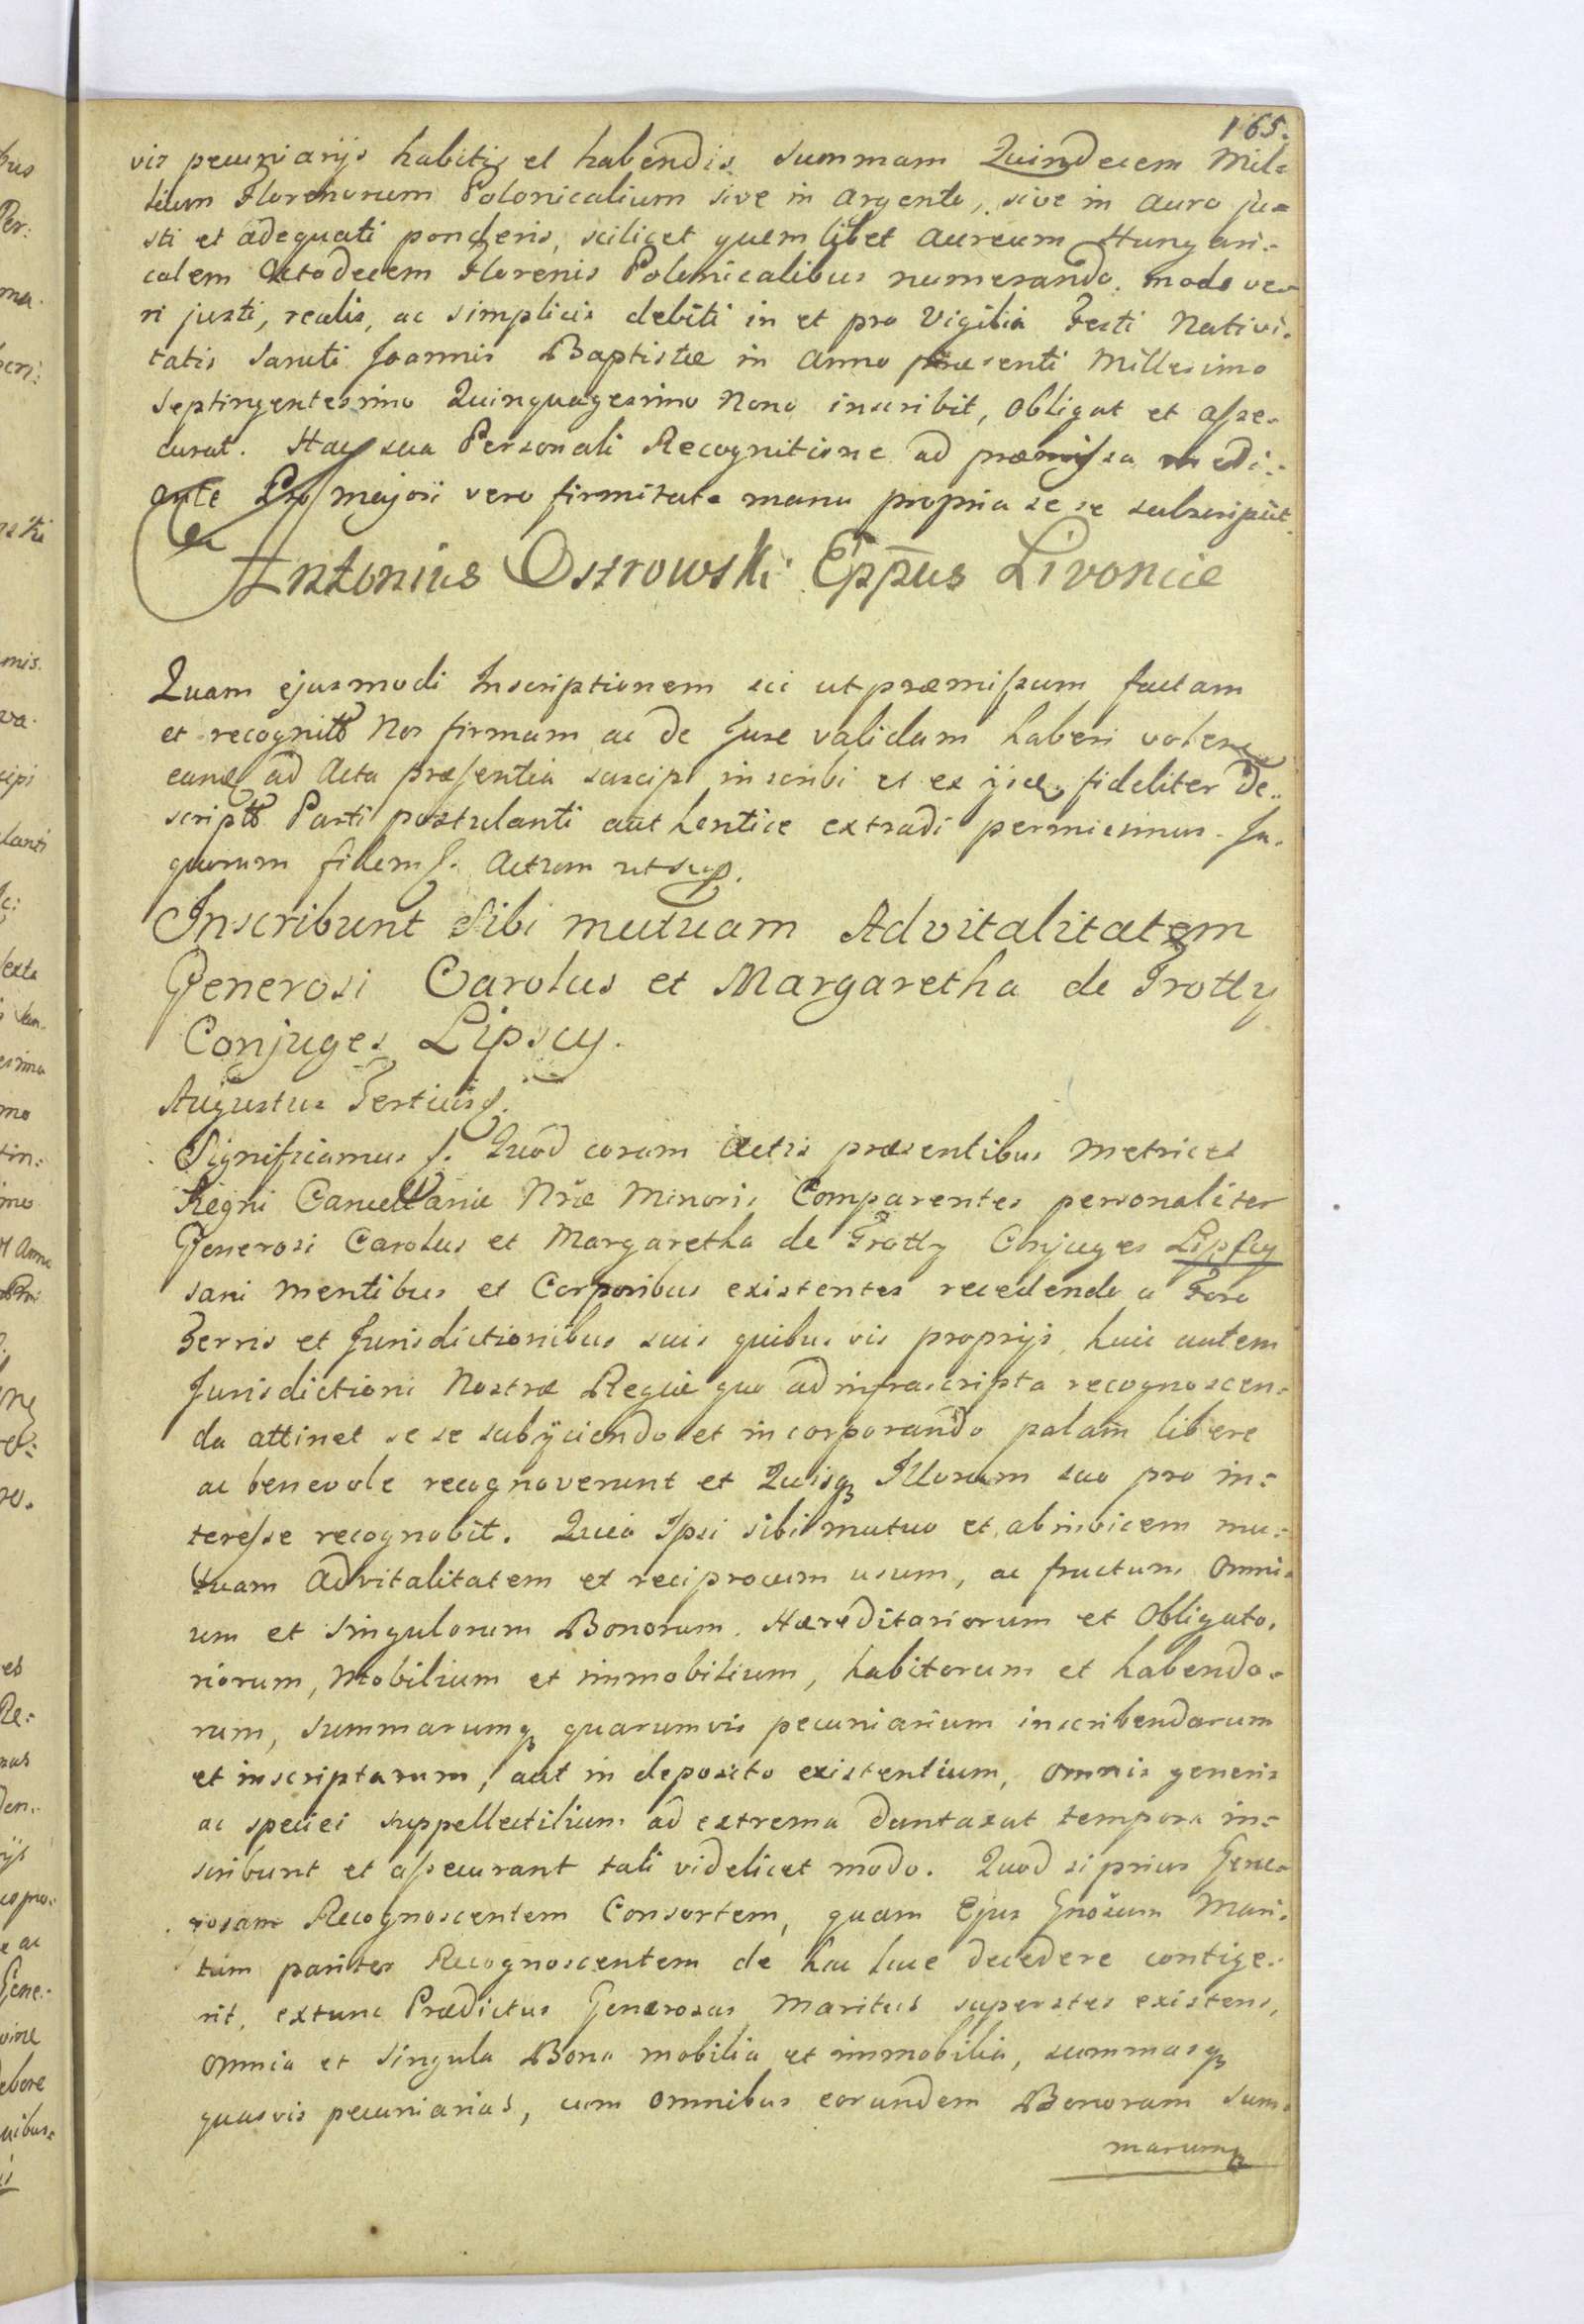 165.
vis pecuniarijs habitis et habendis summam Quindecem Mil=
lium Florenorum Polonicalium sive in argento, sive in auro ju=
sti et adequati ponderis, scilicet quemlibet aureum Hungari=
calem Octodecem Florenis Polonicalibus numerando. modo ve=
ri justi, realis, ac simplicis debiti in et pro Vigilia Festi Nativi=
tatis Sancti Joannis Baptistæ in Anno præsenti Millesimo
Septingentesimo Quinquagesimo Nono inscribit, obligat et asse=
curat. Hac sua Personali Recognitione ad præmissa medi=
ante Pro majori vero firmitate manu propria se se subscripsit.
Antonius Ostrowski Eppūs Livoniæ
Quam ejusmodi Inscriptionem sic ut præmissum factam
et recognit Nos firmam ac de Jure validam haberi volen
eanq ad Acta præsentia suscipi inscribi et ex ijsdq fideliter de=
script Parti postulanti authentice extradi permisimus. In
quorum fidem &. Actum ut sup.
Inscribunt Sibi mutuam Advitalitatem
Generosi Carolus et Margaretha de Trotty
Conjuges Lipscy.
Augustus Tertius &.
Significamus &. Quod coram Actis præsentibus Metrices
Regni Cancellariæ Nræ Minoris Comparentes personaliter
Generosi Carolus et Margaretha de Trotty Conjuges Lipscy
sani mentibus et Corporibus existentes recedendo a Foro
Terris et Jurisdictionibus suis quibusvis proprijs, huic autem
Jurisdictioni Nostræ Regiæ quo ad infrascripta recognoscen=
da attinet se se subijciendo et incorporando palam libere
ac benevole recognoverunt et Quisq Illorum suo pro in=
teresse recognobit. Quia Ipsi sibi mutuo et ab invicem mu=
tuam Advitalitatem et reciprocum usum, ac fructum omni=
um et singulorum Bonorum Hæreditariorum et Obligato=
riorum, Mobilium et immobilium, habitorum et habendo=
rum, summarumq quarumvis pecuniarium inscribendarum
et inscriptarum, aut in deposito existentium, omnis generis
ac speciei suppellectilium ad extrema duntaxat tempora in=
scribunt et assecurant tali videlicet modo. Quod si prius Gene=
rosam Recognoscentem Consortem, quam Ejus Gnosum Mari=
tum pariter Recognoscentem de hac luce decedere contige=
rit, extunc Prædictus Generosus Maritus superstes existens,
omnia et singula Bona mobilia et immobilia, summasq
quasvis pecuniarias, cum omnibus eorundem Bonorum Sum=
marumq